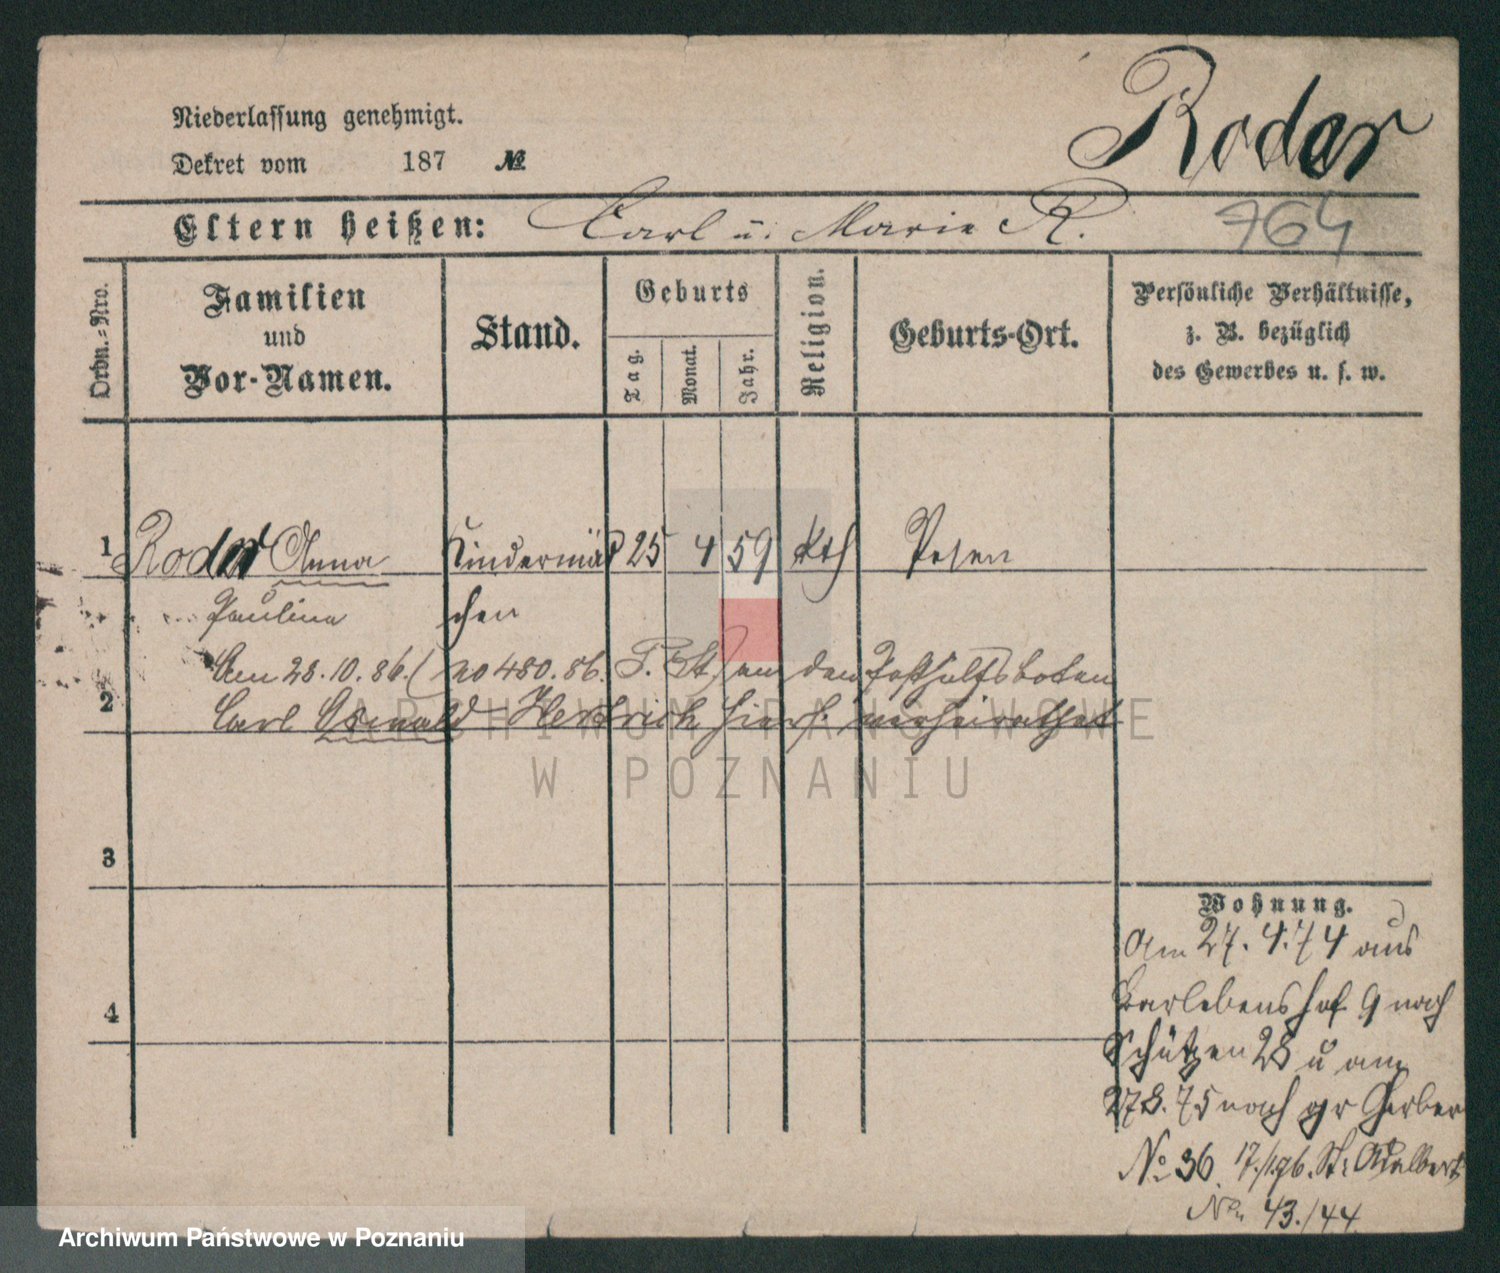 Niederlassung genehmigt.
Dekret vom 187 №
Roder
Eltern heißen: Carl u. Marie R.
764
Ordn.-Nro.
Familien
und
Vor-Namen.
Stand.
Geburts
Tag.
Monat.
Jahr.
Religion.
Geburts-Ort.
Persönliche Verhältnisse,
z. B. bezüglich
des Gewerbes u. s. w.
1 Roder Anna Kindermäd 25 4 59 kth Posen
Paulina chen
Am 28.10.86. (no 480.86. P. St.) an den Posthülfsboten
2 Carl Oswald Hertrich hiers. verheirathet
3
4
Wohnung.
Am 27.4.74 aus
Barlebenshof 9 nach
Schützen 28 u am
27.8.75 nach gr Gerber
No 36. 17./1.76. St: Adalbert
No 43./44
ARCHIWUM PAŃSTWOWE
W POZNANIU
Archiwum Państwowe w Poznaniu